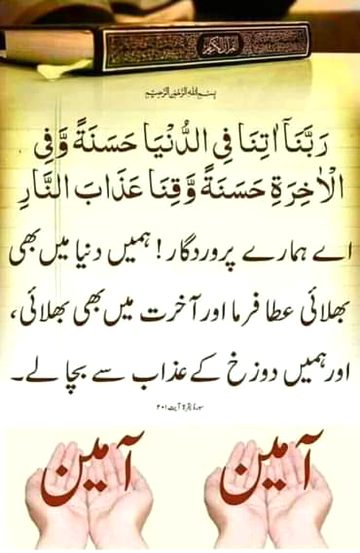 القرآن الكريم
بسم اللہ الرحمٰن الرحیم
رَبَّنَآ اٰتِنَا فِی الدُّنْیَا حَسَنَةً وَّفِی
الْاٰخِرَةِ حَسَنَةً وَّقِنَا عَذَابَ النَّارِ
اے ہمارے پروردگار! ہمیں دنیا میں بھی
بھلائی عطا فرما اور آخرت میں بھی بھلائی،
اور ہمیں دوزخ کے عذاب سے بچالے۔
سورۃ بقرۃ آیت ۲۰۱
آمین آمین